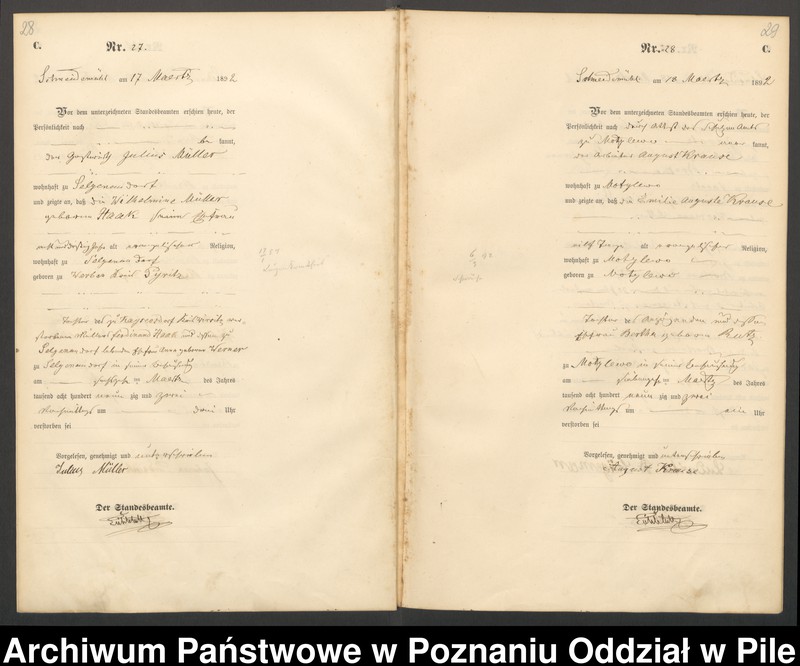 28
C.
Nr. 27.
am 17 Maertz 1892
Vor dem unterzeichneten Standesbeamten erschien heute, der
Persönlichkeit nach
be kannt,
Julius Müller
wohnhaft zu Selgenau Dorf
und zeigte an, daß die Wilhelmine Müller
geborene Haack seine Ehefrau
alt evangelischer Religion,
wohnhaft zu Selgenau Dorf
geboren zu Werben Kreis Pyritz
Tochter des zu Kreis Pyritz
Ferdinand Haack und zu
Selgenau Dorf lebende geborene Werner
zu Selgenau Dorf in seiner Behausung
am Maertz des Jahres
tausend acht hundert neun zig und zwei
Nachmittags um drei Uhr
verstorben sei
Vorgelesen, genehmigt und unterschrieben
Julius Müller
Der Standesbeamte.
29
C.
Nr. 28
am 18 Maertz 1892
Vor dem unterzeichneten Standesbeamten erschien heute, der
Persönlichkeit nach durch Attest des Schulzen Amts
zu Motylewo aner kannt,
der Arbeiter August Krause
wohnhaft zu Motylewo
und zeigte an, daß die Emilie Auguste Krause
elf Tage alt evangelischer Religion,
wohnhaft zu Motylewo
geboren zu Motylewo
Tochter des Anzeigenden und dessen
Ehefrau Bertha geborene
zu Motylewo in seiner Behausung
am siebzehn ten Maertz des Jahres
tausend acht hundert neun zig und zwei
Nachmittags um ein Uhr
verstorben sei
Vorgelesen, genehmigt und unterschrieben
August Krause
Der Standesbeamte.
Archiwum Państwowe w Poznaniu Oddział w Pile